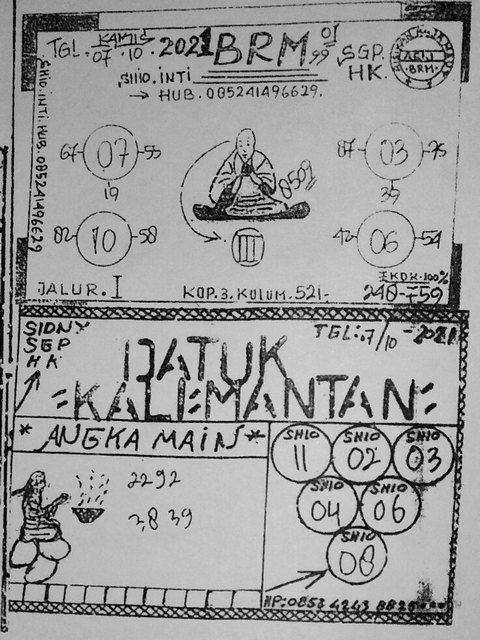 TGL. KAMIS 07.10.2021 BRM 99 01 SGP. HK.
ASLI
BRM
SHIO.INTI
→ HUB.085241496629.
SHIO.INTI.HUB.085241496629
67 07 55
19
87 03 75
35
8509
82 10 58
III
42 06 54
JALUR.I
KOP.3.KOLUM.521-
EKOR.100%
SIDNY
SGP
HK
TGL:.7/10-2021
DATUK
=KALIMANTAN=
* ANGKA MAIN *
2292
2,8 39
SHIO 11
SHIO 02
SHIO 03
SHIO 04
SHIO 06
SHIO 08
HP:0853 4243